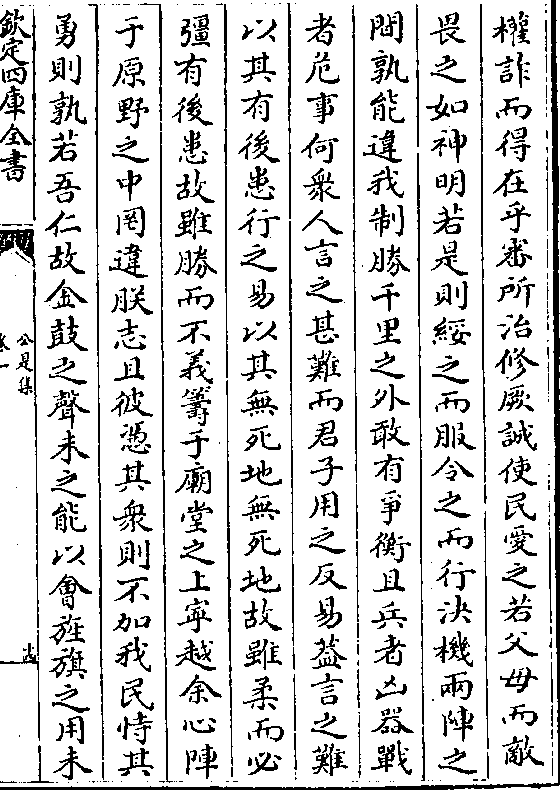 權詐而得在乎審所治修厥誠使民愛之若父母而敵
畏之如神明若是則綏之而服令之而行決機兩陣之
間孰能違我制勝千里之外敢有爭衡且兵者凶器戰
者危事何衆人言之甚難而君子用之反易葢言之難
以其有後患行之易以其無死地無死地故雖柔而必
彊有後患故雖勝而不義籌于廟堂之上寧越余心陣
于原野之中罔違朕志且彼憑其衆則不加我民恃其
勇則孰若吾仁故金鼓之聲未之能以會旌旗之用未
欽定四庫全書
公是集
卷一